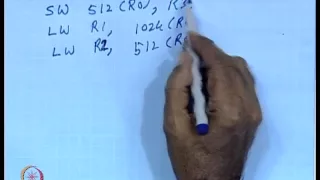 SW 512 (R0), R3
LW R1, 1024 (R
LW R2, 512 (R